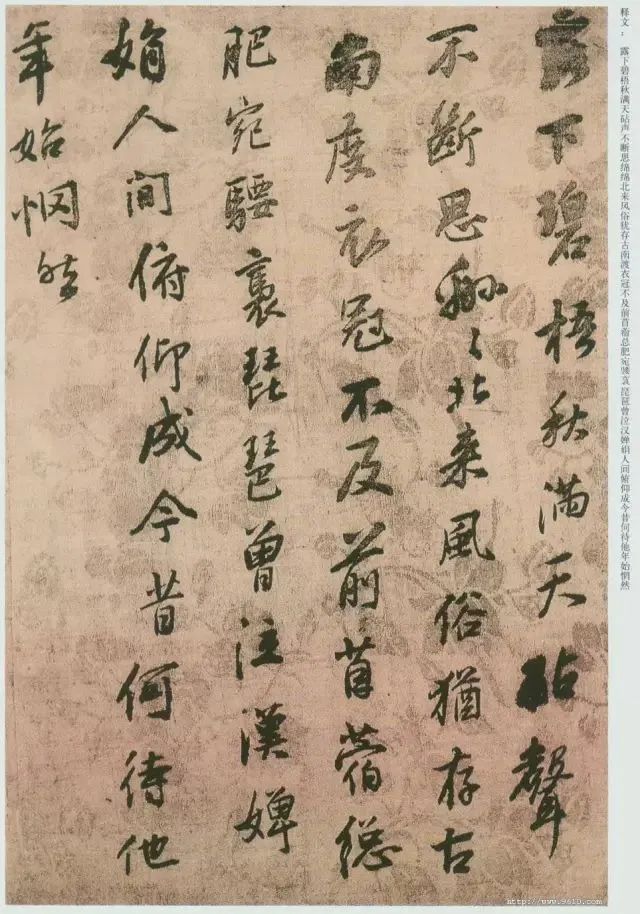 释文： 露下碧梧秋满天砧声不断思绵绵北来风俗犹存古南渡衣冠不及前苜蓿总肥宛騕袅琵琶曾泣汉婵娟人间俯仰成今昔何待他年始惘然
露下碧梧秋滿天砧聲
不斷思緜〻北來風俗猶存古
南度衣冠不及前苜蓿總
肥宛騕褭琵琶曾泣漢嬋
娟人間俯仰成今昔何待他
年始惘然
http://www.9610.com